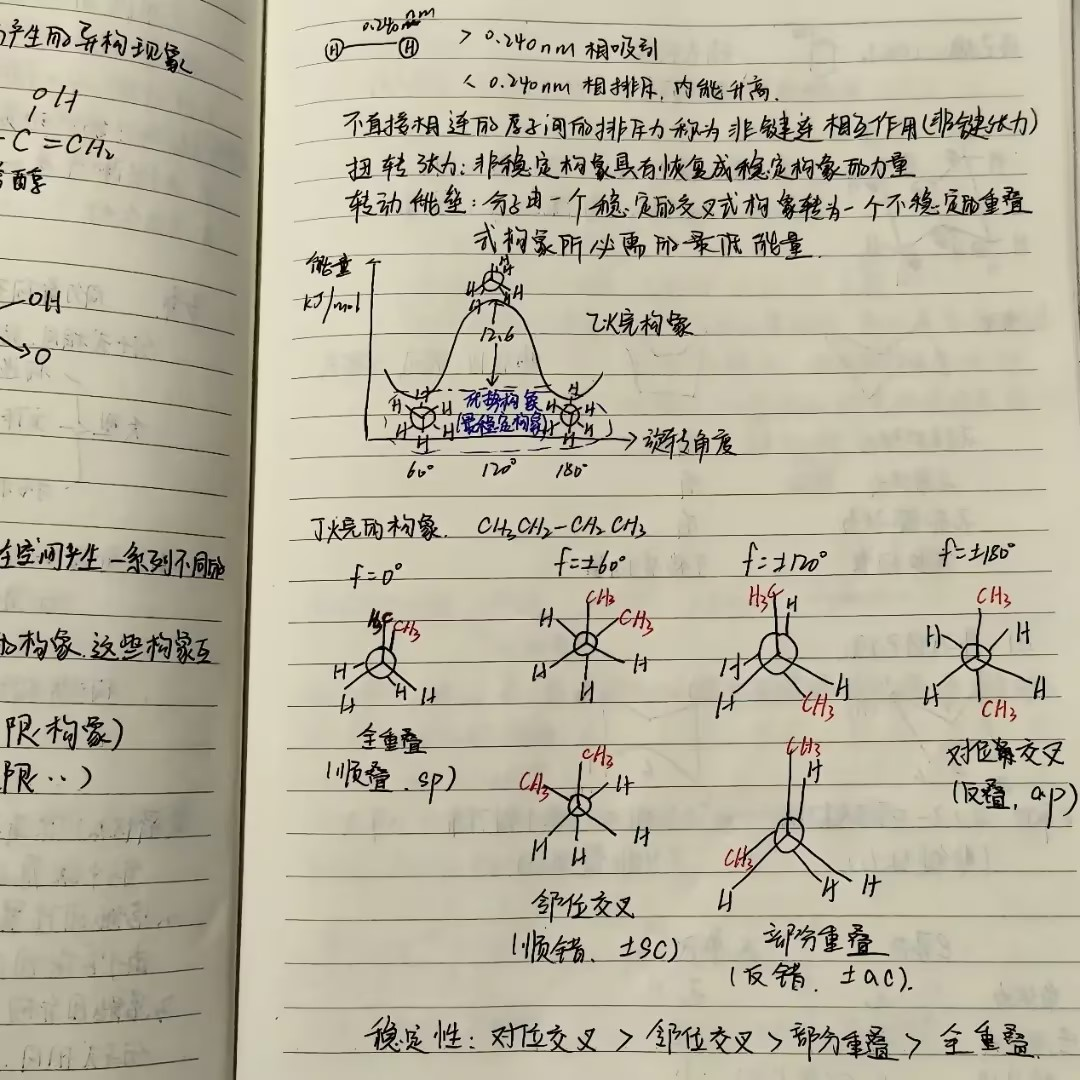 产生的异构现象
OH
C=CH₂
醇
OH
O
空间产生一系列不同的
构象.这些构象互
限构象)
限..)
0.240nm
H H
> 0.240nm 相吸引
< 0.240nm 相排斥,内能升高.
不直接相连的原子间的排斥力称为非键连相互作用(非键张力)
扭转张力:非稳定构象具有恢复成稳定构象的力量
转动能垒:分子由一个稳定的交叉式构象转为一个不稳定的重叠
式构象所必需的最低能量.
能量
kJ/mol
H H H H H
12.6
乙烷构象
优势构象
(最稳定构象)
H H H H H H
H H H H H H
旋转角度
60° 120° 180°
丁烷的构象. CH₃CH₂-CH₂CH₃
f=0° f=±60° f=±120° f=±180°
H₃C CH₃
H H H H
CH₃ CH₃
H H H H
H₃C H
H H H CH₃
CH₃
H H H H
CH₃
全重叠
(顺叠.sp)
CH₃ CH₃
H H H H
邻位交叉
(顺错.±sc)
CH₃ H
CH₃ H H H
部分重叠
(反错.±ac).
对位交叉
(反叠,ap)
稳定性:对位交叉 > 邻位交叉 > 部分重叠 > 全重叠.